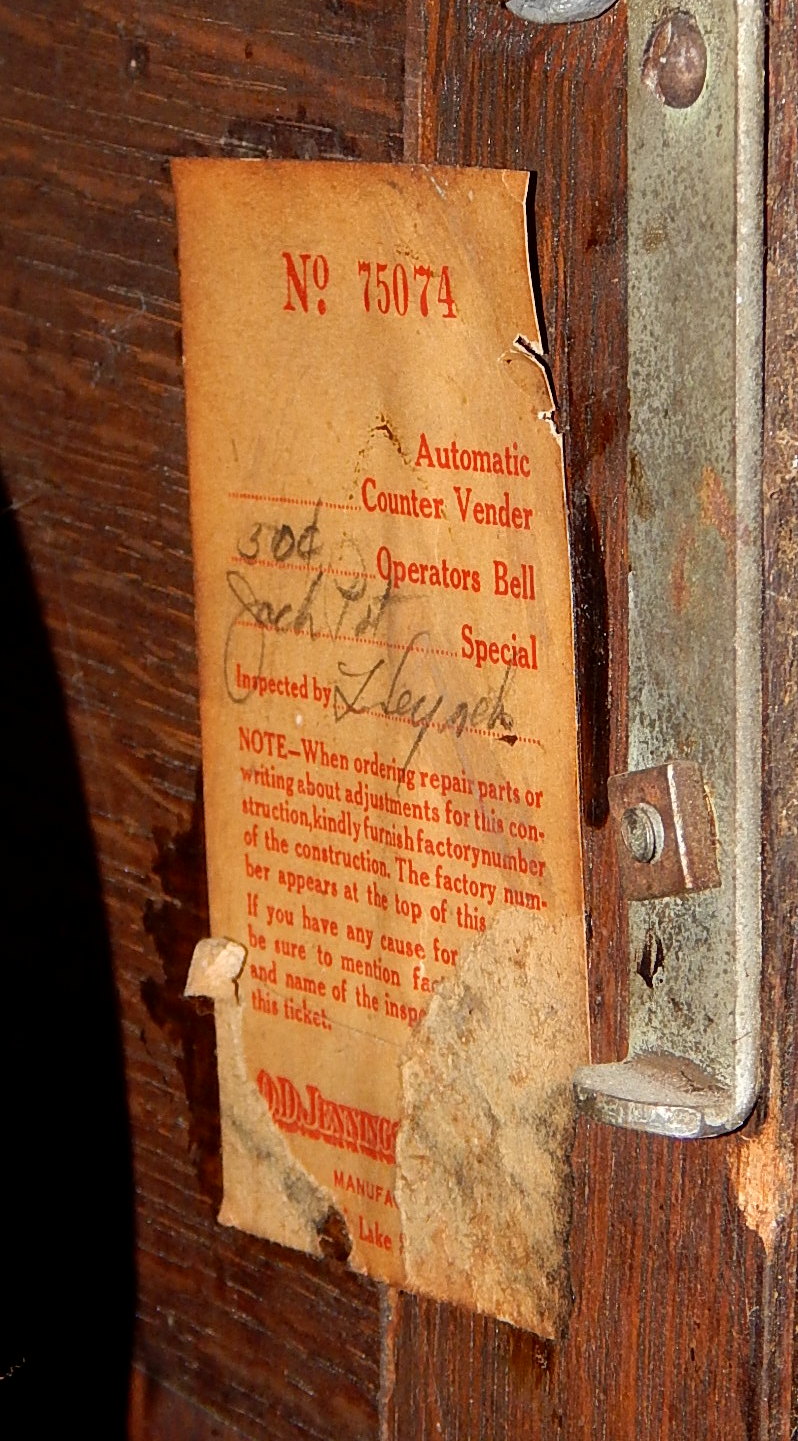 No. 75074
Automatic
Counter Vender
50¢ Operators Bell
Jack Pot Special
Inspected by
NOTE—When ordering repair parts or
writing about adjustments for this con-
struction, kindly furnish factory number
of the construction. The factory num-
ber appears at the top of this
If you have any cause for
be sure to mention fac
and name of the inspe
this ticket.
O.D. JENNINGS
MANUFA
Lake S